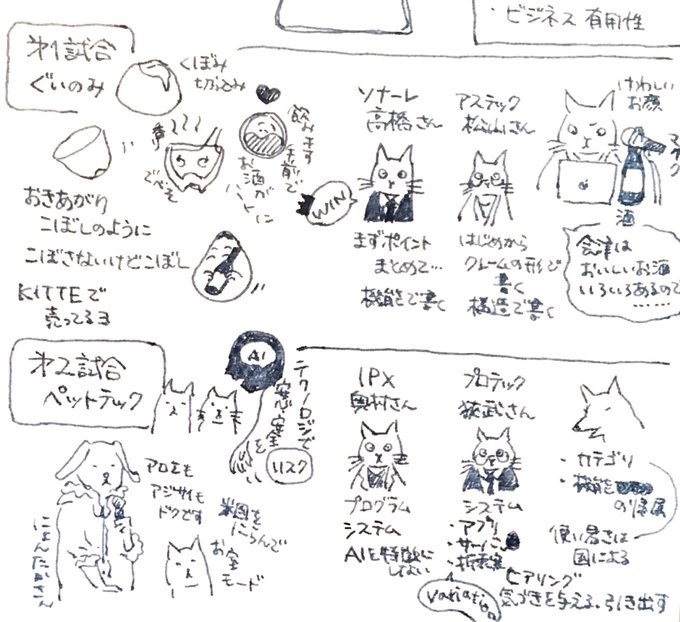 ・ビジネス 有用性
第1試合
ぐいのみ
くぼみ
切込み
飲みます
お酒が
ハートに
おきあがり
こぼしのように
こぼさないけどこぼし
KITTEで
売ってるヨ
ソナーレ
高橋さん
WIN
まずポイント
まとめて…
機能で書く
アステック
松山さん
はじめから
クレームの形で
書く
構造で書く
けわしい
お顔
マイク
酒
会津は
おいしいお酒
いろいろあるので
……
第2試合
ペットテック
AI
テクノロジで
安心安全
を
リスク
アロエも
アジサイも
ドクです
米国を
にらんで
お宝
モード
IPX
奥村さん
プログラム
システム
AIを特徴に
しない
プロテック
狭武さん
システム
・アプリ
・サーバ
variation
ヒアリング
気づきを与える、引き出す
・カテゴリ
・機能
の帰属
使い易さは
国による